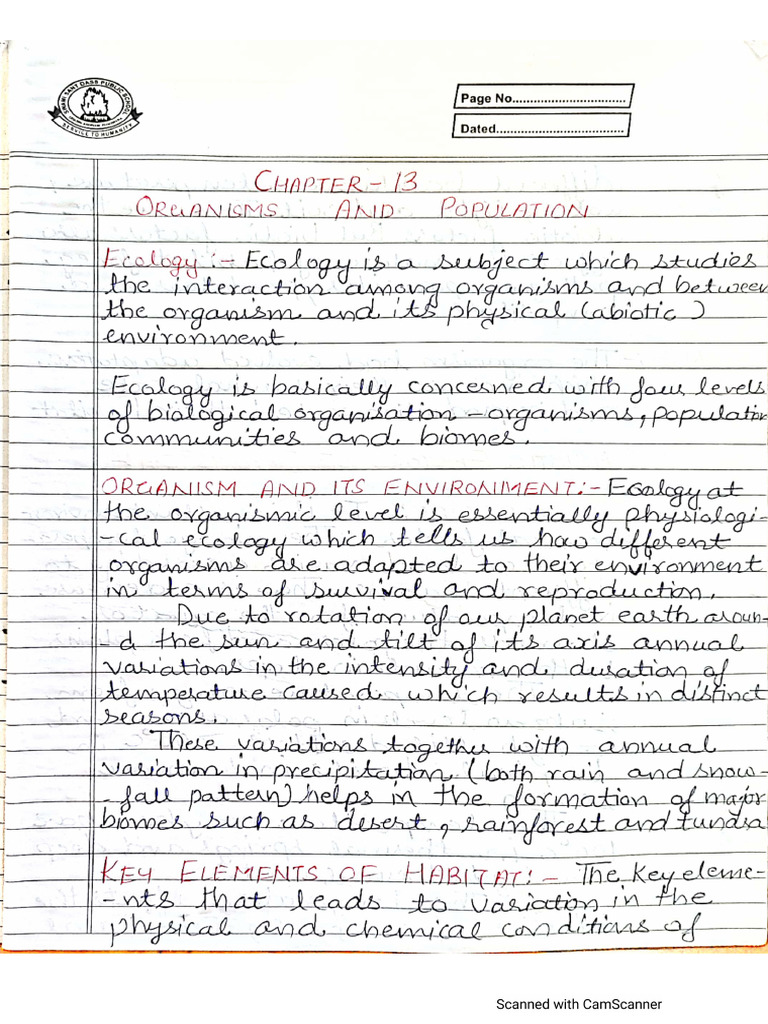 SWAMI SANT DASS PUBLIC SCHOOL
SERVICE TO HUMANITY
Page No................................
Dated....................................
CHAPTER-13
ORGANISMS AND POPULATION
Ecology :- Ecology is a subject which studies
the interaction among organisms and between
the organism and its physical (abiotic)
environment.
Ecology is basically concerned with four levels
of biological organisation - organisms, population
communities and biomes.
ORGANISM AND ITS ENVIRONMENT:- Ecology at
the organismic level is essentially physiologi-
-cal ecology which tells us how different
organisms are adapted to their environment
in terms of survival and reproduction.
Due to rotation of our planet earth aroun-
-d the sun and tilt of its axis annual
variations in the intensity and duration of
temperature caused which results in distinct
seasons.
These variations together with annual
variation in precipitation (both rain and snow-
-fall pattern) helps in the formation of major
biomes such as desert, rainforest and tundra
KEY ELEMENTS OF HABITAT:- The key eleme-
-nts that leads to variation in the
physical and chemical conditions of
Scanned with CamScanner